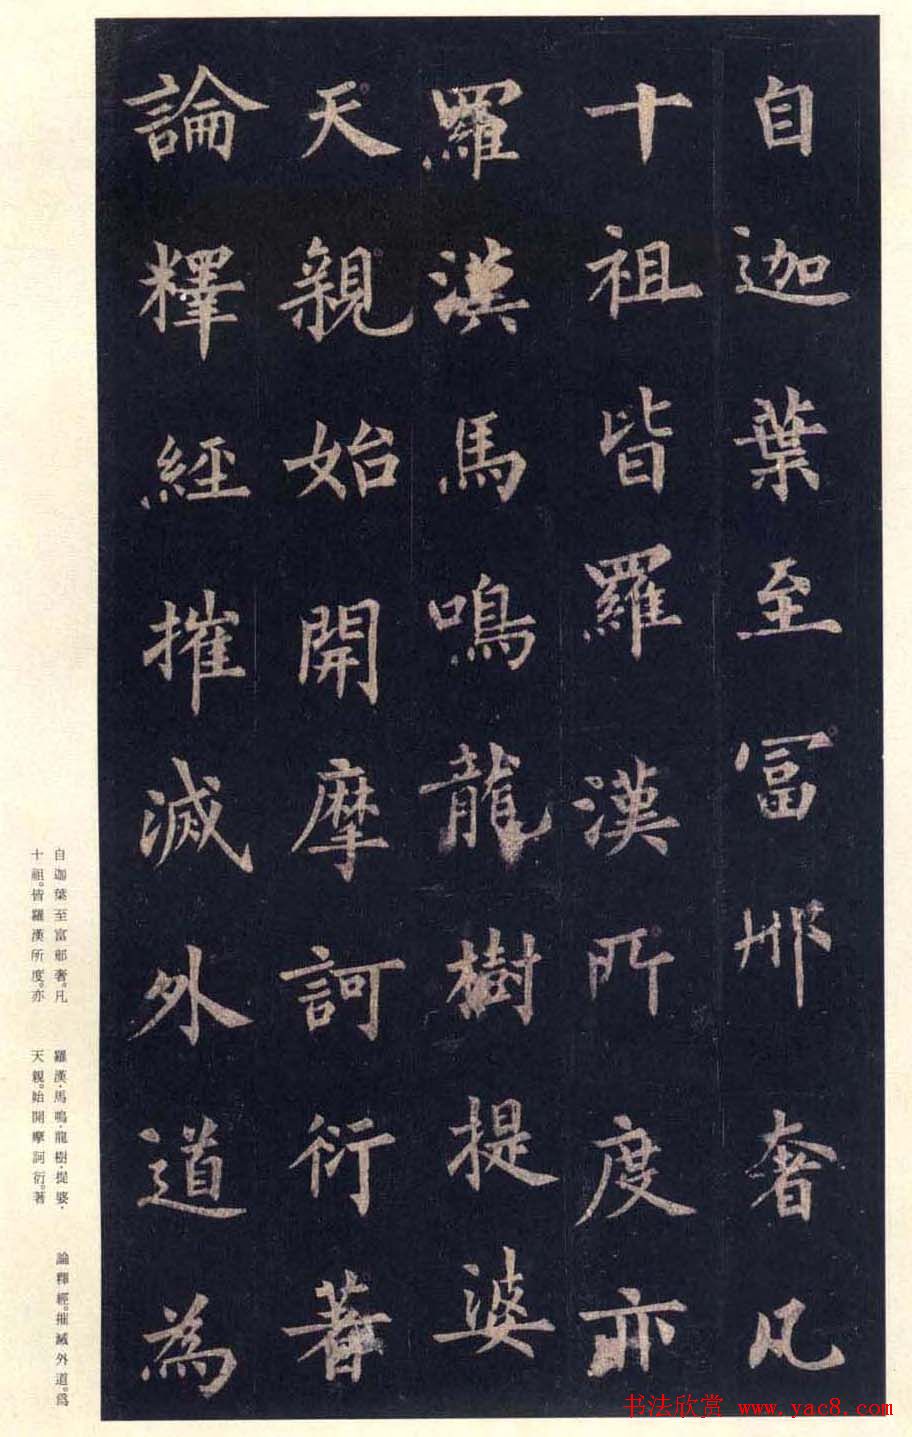 自迦葉至富那奢凡
十祖皆羅漢所度亦
羅漢馬鳴龍樹提婆
天親始開摩訶衍著
論釋經摧滅外道為
自迦葉至富那奢。凡
十祖。皆羅漢所度。亦
羅漢·馬鳴·龍樹·提婆·
天親。始開摩訶衍。著
論釋經。摧滅外道。爲
书法欣赏 www.yac8.com